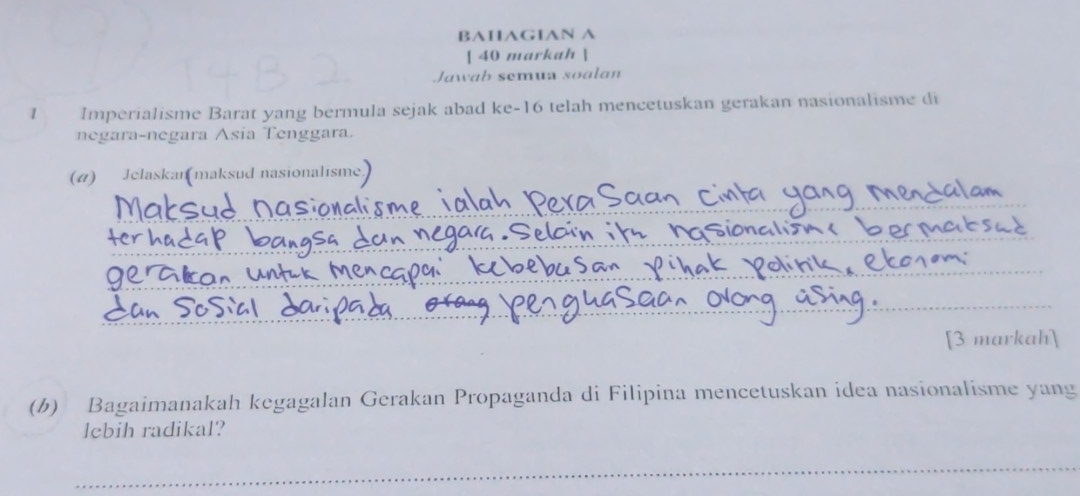 BAHAGIAN A
[ 40 markah ]
Jawab semua soalan
1 Imperialisme Barat yang bermula sejak abad ke-16 telah mencetuskan gerakan nasionalisme di
negara-negara Asia Tenggara.
(a) Jelaskan (maksud nasionalisme.)
Maksud nasionalisme ialah perasaan cinta yang mendalam
terhadap bangsa dan negara. Selain itu nasionalisme bermaksud
gerakan untuk mencapai kebebasan pihak politik, ekonomi
dan sosial daripada orang penguasaan orang asing.
[3 markah]
(b) Bagaimanakah kegagalan Gerakan Propaganda di Filipina mencetuskan idea nasionalisme yang
lebih radikal?